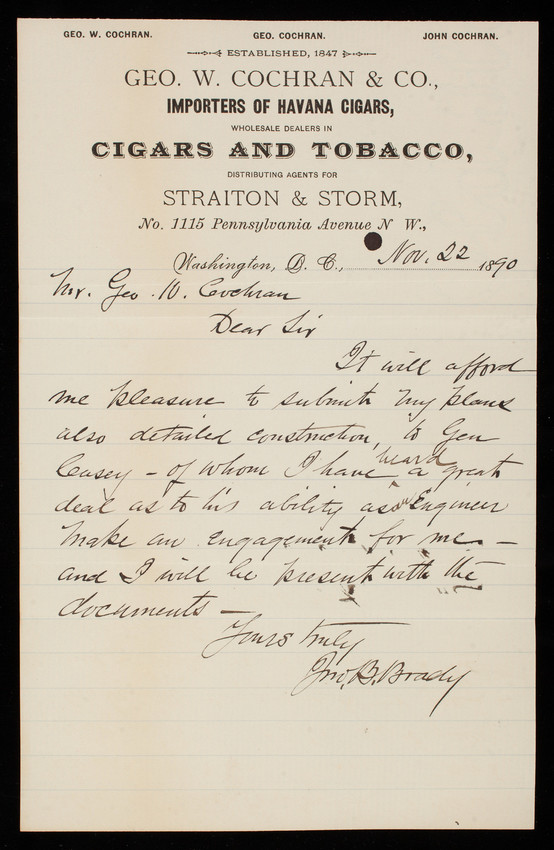 GEO. W. COCHRAN. GEO. COCHRAN. JOHN COCHRAN.
ESTABLISHED, 1847
GEO. W. COCHRAN & CO.,
IMPORTERS OF HAVANA CIGARS,
WHOLESALE DEALERS IN
CIGARS AND TOBACCO,
DISTRIBUTING AGENTS FOR
STRAITON & STORM,
No. 1115 Pennsylvania Avenue N W.,
Washington, D. C., Nov. 22 1890
Mr. Geo. W. Cochran
Dear Sir
It will afford
me pleasure to submit my plans
also detailed construction, to Gen
Casey - of whom I have heard a great
deal as to his ability as Engineer
make an engagement for me -
and I will be present with the
documents -
Yours truly
Jno. B. Brady